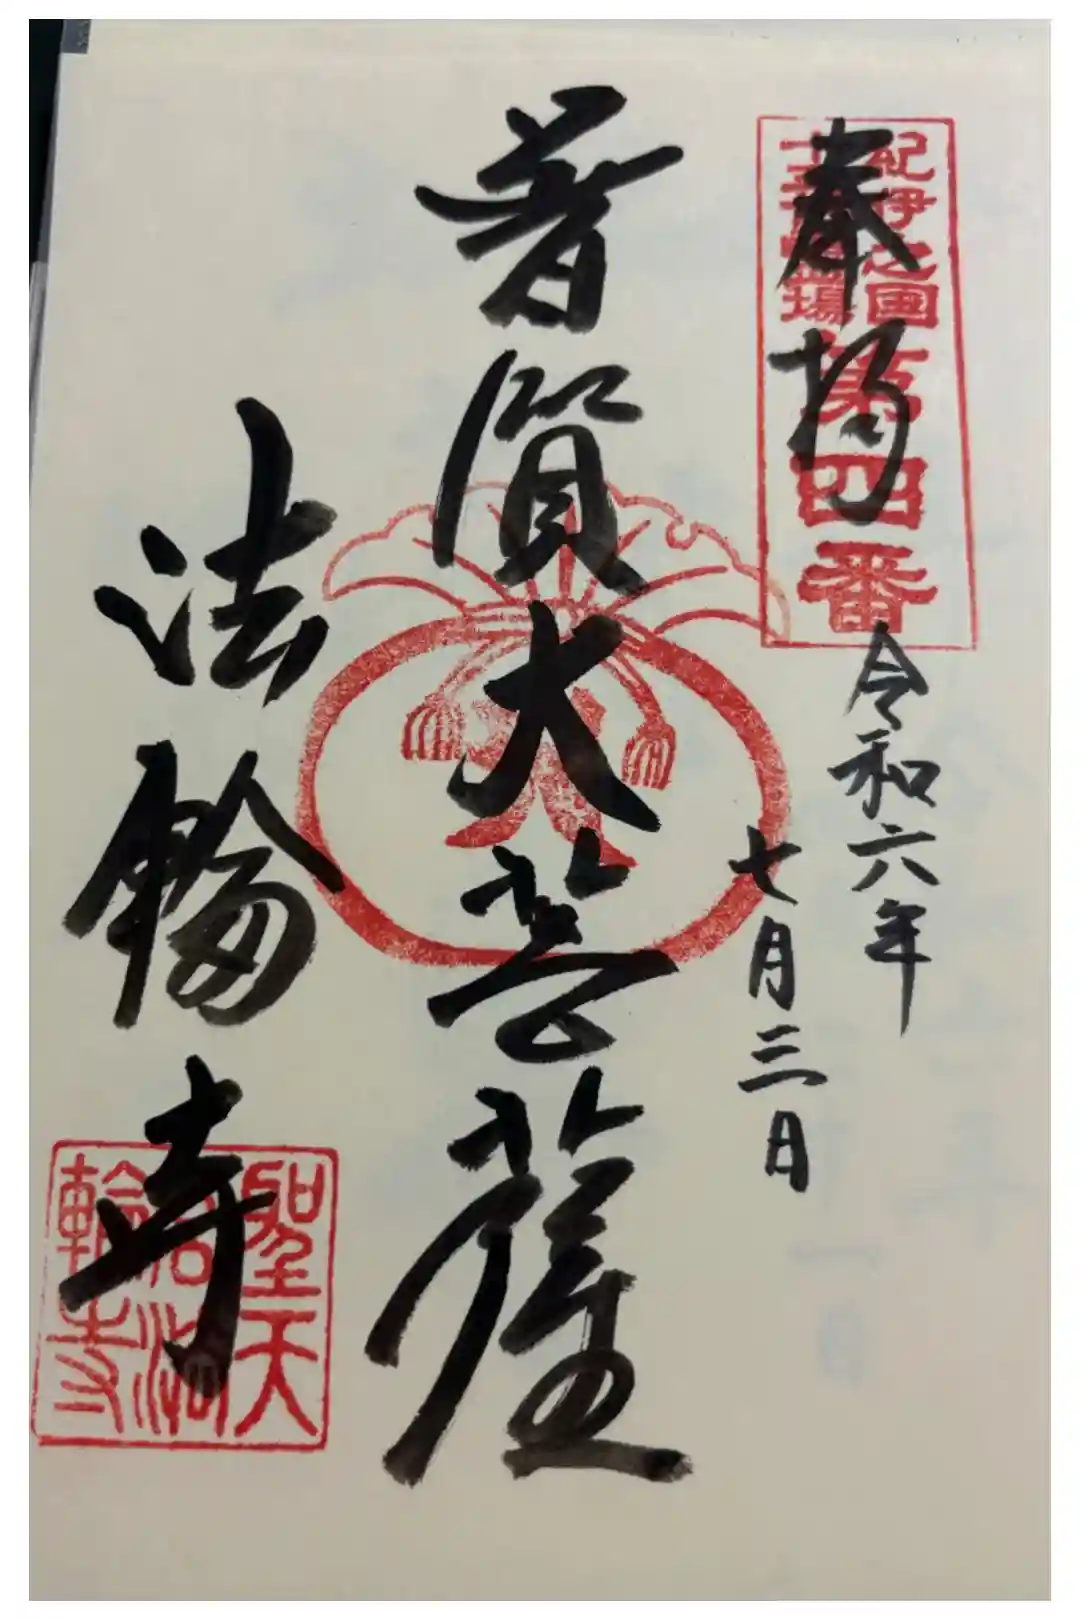 紀伊之国
十三佛霊場
第四番
奉拝
令和六年
七月三日
普賢大菩薩
法輪寺
聖天
宮法
輪寺